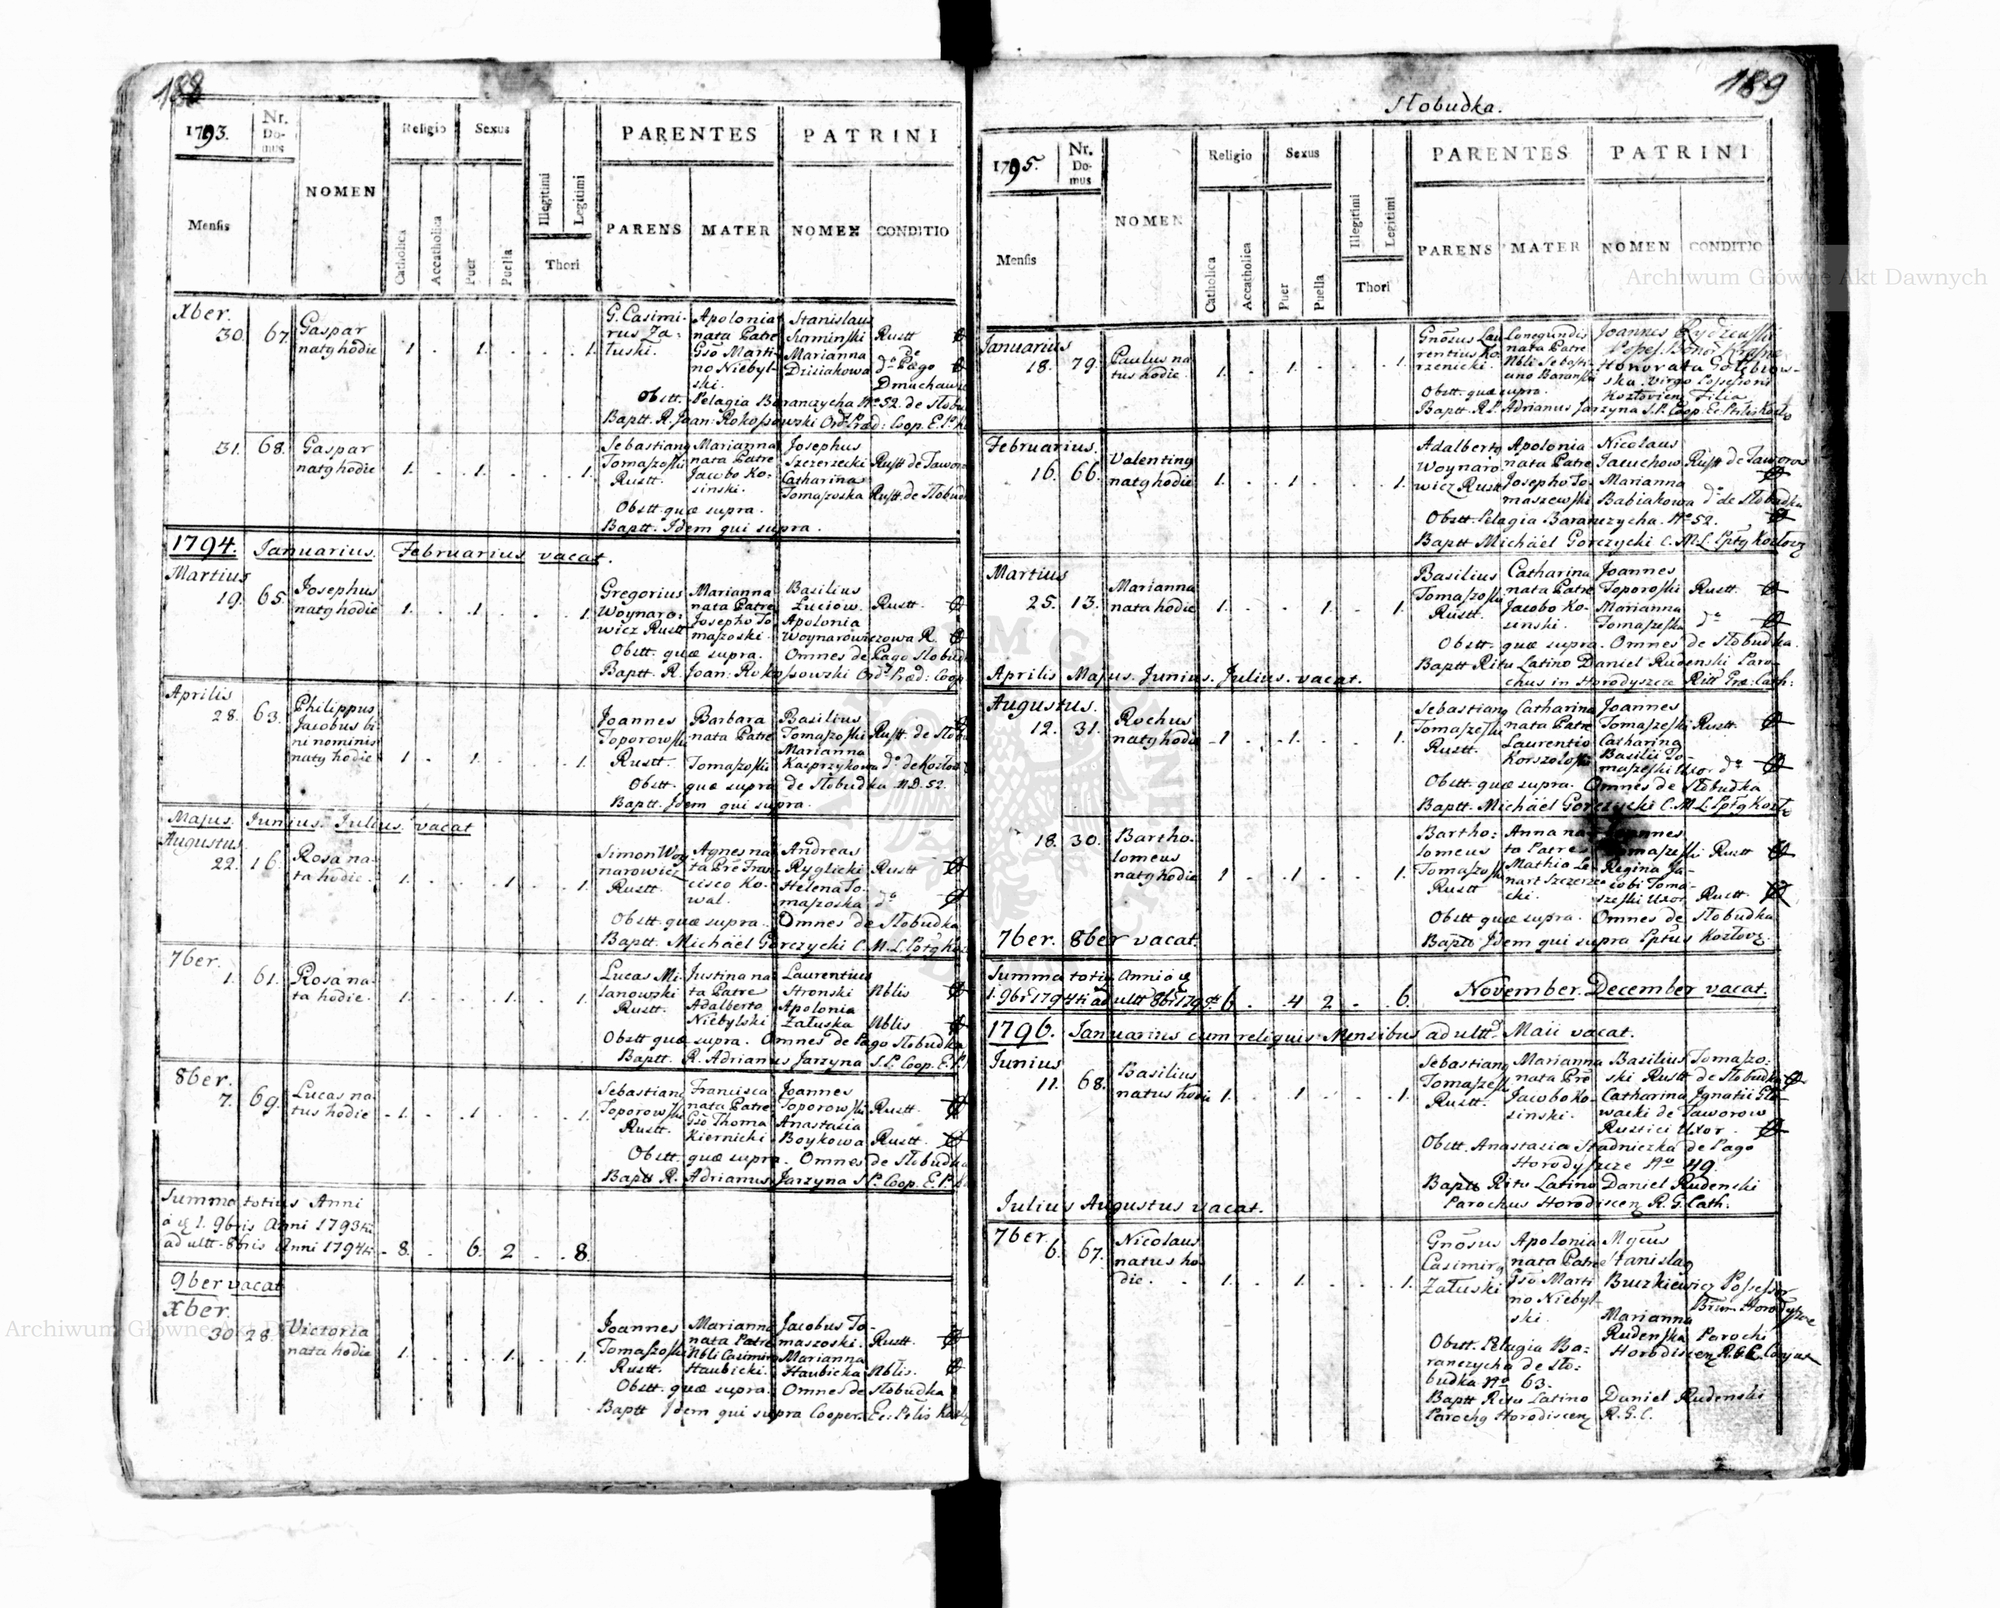 188
1793.
Nr. Domus
NOMEN
Religio
Sexus
PARENTES
PATRINI
Mensis
Catholica
Accatholica
Puer
Puella
Illegitimi
Legitimi
Thori
PARENS
MATER
NOMEN
CONDITIO
Xber.
30. 67. Gaspar natg hodie 1. . 1. . . 1.
G. Casimirus Załuski.
Apolonia nata Patre Gso Martino Niebylski.
Stanislaus Suminski Rustt
Marianna Dzisiakowa do de Pago Dmuchaw
Obstt. Pelagia Baranczycha No 52. de Słobu
Baptt. R. Joan: Rokossowski Ord: Præd: Coop. E. P.
31. 68. Gaspar natg hodie 1. . 1. . . 1.
Sebastiang Tomaszoski Rustt.
Marianna nata Patre Jacobo Kosinski.
Josephus Szczerzecki Rustt de Jawor
Catharina Tomaszoska Rustt. de Słobud
Obstt. quæ supra.
Baptt. Idem qui supra.
1794. Januarius. Februarius vacat.
Martius
19. 65. Josephus natg hodie 1. . 1. . . 1.
Gregorius Woynarowicz Rustt
Marianna nata Patre Josepho Tomaszoski.
Basilius Luciow. Rustt.
Apolonia Woynarowiczowa R.
Obstt. quæ supra. Omnes de Pago Słobud
Baptt. R. Joan: Rokossowski Ord: Præd: Coop
Aprilis
28. 63. Philippus Jacobus bini nominis natg hodie 1. . 1. . . 1.
Joannes Toporowski Rustt.
Barbara nata Patre Tomaszoski
Basilius Tomaszoski Rustt. de Słob
Marianna Kasprzykowa do de Kozłow
Obstt. quæ supra de Słobudka ND. 52.
Baptt. Idem qui supra.
Majus. Junius. Julius. vacat
Augustus
22. 16. Rosa nata hodie. 1. . . 1. . 1.
Simon Woynarowicz Rustt.
Agnes nata Pre Francisco Kowal.
Andreas Ryglicki Rustt
Helena Tomaszoska do
Obstt. quæ supra. Omnes de Słobudka
Baptt. Michäel Gorczycki C. M. L. Pptg Ko
7ber.
1. 61. Rosa nata hodie. 1. . . 1. . 1.
Lucas Milanowski Rustt.
Justina nata Patre Adalberto Niebylski
Laurentius Stronski Nblis
Apolonia Załuska Nblis
Obstt quæ supra. Omnes de Pago Słobudka
Baptt. R. Adrianus Jarzyna S. P. Coop. E. P.
8ber.
7. 69. Lucas natus hodie 1. . 1. . . 1.
Sebastiang Toporowski Rustt.
Francisca nata Patre Gso Thoma Kiernicki
Joannes Toporowski Rustt.
Anastasia Boykowa Rustt.
Obstt. quæ supra. Omnes de Słobudka
Baptt R. Adrianus Jarzyna S. P. Coop. E. P.
Summa totius Anni
a 1. 9bris Anni 1793ti
ad ultt. 8bris Anni 1794ti 8. . 6. 2 . . 8.
9ber vacat
Xber.
30. 28. Victoria nata hodie 1. . . 1. . 1.
Joannes Tomaszoski Rustt.
Marianna nata Patre Nbli Casimiro Haubicki.
Jacobus Tomaszoski. Rustt.
Marianna Haubicka Nblis.
Obstt. quæ supra. Omnes de Słobudka
Baptt Idem qui supra Cooper. Ec: Plis
189
Słobudka.
1795.
Nr. Domus
NOMEN
Religio
Sexus
PARENTES
PATRINI
Mensis
Catholica
Accatholica
Puer
Puella
Illegitimi
Legitimi
Thori
PARENS
MATER
NOMEN
CONDITIO
Januarius
18. 79. Paulus natus hodie. 1. . 1. . . 1.
Gnōsus Laurentius Korzenicki.
Conegundis nata Patre Nbli Sebastiano Baranski
Joannes
Honorata Gołębiowska. Virgo
Filia
Obstt. quæ supra.
Baptt. R. P. Adrianus Jarzyna S. P. Coop. Ec.
Februarius.
16. 66. Valenting natg hodie 1. . 1. . . 1.
Adalbertg Woynarowicz Rustt
Apolonia nata Patre Josepho Tomaszewski
Nicolaus Jacuchow Rustt de Jaworow
Marianna Babiakowa do de Słobudka
Obstt. Pelagia Baranczycha. No 52.
Baptt Michäel Gorczycki C. M. L. Pptg Kozłovg
Martius
25. 13. Marianna nata hodie 1. . . 1. . 1.
Basilius Tomaszoski Rustt.
Catharina nata Patre Jacobo Kosinski.
Joannes Toporoski Rustt.
Marianna Tomaszeska do
Obstt. quæ supra. Omnes de Słobudka.
Baptt Ritu Latino Daniel Rudenski Parochus in Horodyszcze Ritt Græ: Cath:
Aprilis Majus. Junius. Julius. vacat.
Augustus.
12. 31. Rochus natg hodie 1. . 1. . . 1.
Sebastiang Tomaszeski Rustt.
Catharina nata Patre Laurentio Korszoloski
Joannes Tomaszeski Rustt.
Catharina Basilii Tomaszeski Uxor do
Obstt. quæ supra. Omnes de Słobudka
Baptt. Michäel Gorczycki C. M. L. Pptg
18. 30. Bartholomeus natg hodie 1. . 1. . . 1.
Bartholomeus Tomaszoski Rustt
Anna nata Patre Mathia Lenart Szczerzecki.
Joannes Tomaszeski Rustt
Regina Jacobi Tomaszeski Uxor. Rustt.
Obstt quæ supra. Omnes de Słobudka
7ber. 8ber vacat.
Baptt Idem qui supra Pptus Kozłovg.
Summa totig Anni a
1. 9bri 1794ti ad ultt 8bri 1795ti 6. . 4 2. . 6.
November. December vacat.
1796. Januarius cum reliquis Mensibus ad ultt. Maii vacat.
Junius
11. 68. Basilius natus hodie 1. . 1. . . 1.
Sebastiang Tomaszeski Rustt.
Marianna nata Pre Jacobo Kosinski.
Basilius Tomaszoski Rustt de Słobudka
Catharina Ignatii Głowacki de Jaworow Rustici Uxor.
Obstt. Anastasia Stadniczka de Pago
Horodyszcze No 49.
Baptt Ritu Latino Daniel Rudenski
Parochus Horodiscen R. G. Cath.
Julius Augustus vacat.
7ber.
6. 67. Nicolaus natus hodie. 1. . 1. . . 1.
Gnōsus Casimirg Załuski
Apolonia nata Patre Gso Martino Niebylski.
Mgcus Stanislag Buszkiewicz Possessor
Marianna Rudenska Parochi Horodiscen R. G. C.
Obstt. Pelagia Baranczycha de Słobudka No 63.
Baptt Ritu Latino Daniel Rudenski
Parochg Horodiscen R. G. C.
Archiwum Główne Akt Dawnych